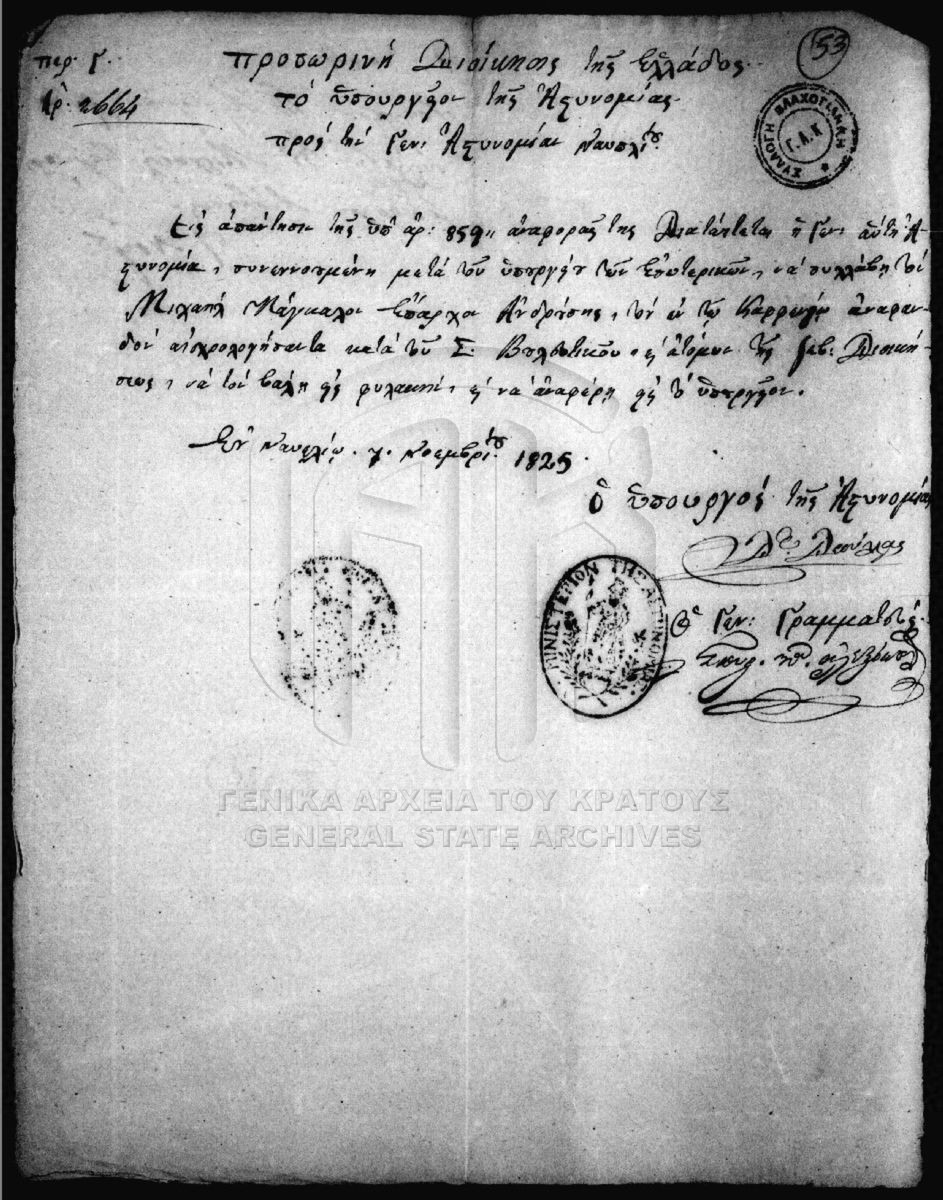 53
Περ. Γ.
Ἀρ. 2664
Προσωρινή Διοίκησις τῆς Ἑλλάδος
τό ὑπουργεῖον τῆς Ἀστυνομίας
πρός τήν Γεν: Ἀστυνομίαν Ναυπλίου
ΣΥΛΛΟΓΗ ΒΛΑΧΟΓΙΑΝΝΗ
Γ.Α.Κ
Εἰς ἀπάντησιν τῆς ὑπ' ἀρ: 859 ἀναφορᾶς της Διατάττεται ἡ Γεν: αὕτη Ἀ
στυνομία, συνεννοημένη μετά τοῦ ὑπουργείου τῶν Ἐσωτερικῶν, νά συλλάβῃ τόν
Μιχαήλ Μάγκαλον Ἔπαρχον Ἀνδρίσης, τόν ἐν τῷ ἀναφαν
δόν αἰσχρολογήσαντα κατά τοῦ Σ. Βουλευτικοῦ, καί ἀτόμων τῆς Σεβ: Διοική
σεως, νά τόν βάλῃ εἰς φυλακήν, καί νά ἀναφέρῃ εἰς τό ὑπουργεῖον.
Ἐν Ναυπλίῳ. 7. Νοεμβρίου 1825.
Ὁ ὑπουργός τῆς Ἀστυνομίας
ΜΙΝΙΣΤΕΡΙΟΝ ΤΗΣ ΑΣΤΥΝΟΜΙΑΣ
Ὁ Γεν: Γραμματεύς
ΓΕΝΙΚΑ ΑΡΧΕΙΑ ΤΟΥ ΚΡΑΤΟΥΣ
GENERAL STATE ARCHIVES